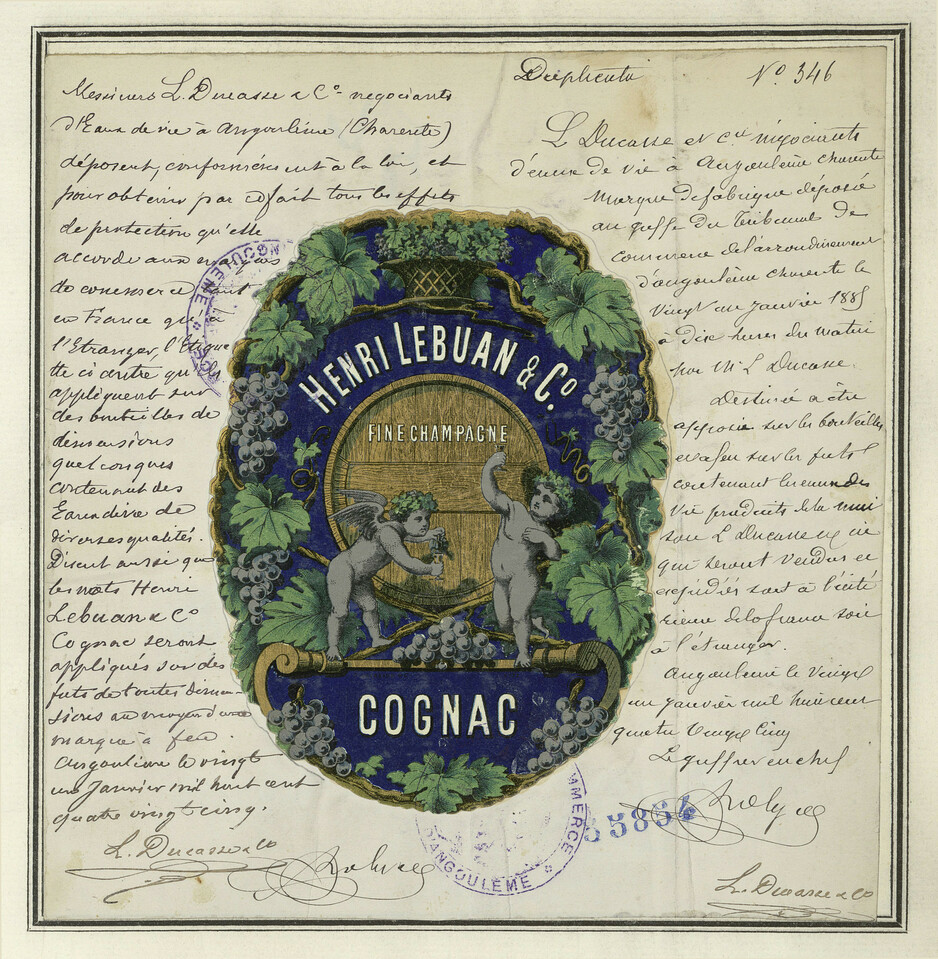 Messieurs L. Ducasse & Co négociants
d'Eaux de vie à Angoulême (Charente)
déposent, conformément à la loi, et
pour obtenir par ce fait tous les effets
de protection qu'elle
accorde aux marques
de commerce tant
en France qu'à
l'Etranger, l'Etique
tte ci contre qu'
appliquent sur
des bouteilles de
dimensions
quelconques
contenant des
Eaux de vie de
diverses qualités.
Disent aussi que
les mots Henri
Lebuan & Co
Cognac seront
appliqués sur des
futs de toutes dimen-
sions au moyen d'une
marque à feu.
Angoulême le vingt
un Janvier mil huit cent
quatre vingt cinq.
L. Ducasse & Co
Duplicata
No 346
L Ducasse et Cie négociants
d'eaux de vie à Angoulême charente
Marque de fabrique déposée
au greffe du Tribunal de
commerce de l'arrondissement
d'angoulême charente le
Vingt un janvier 1885
à dix heures du matin
par Mr L Ducasse.
Destinée à être
apposée sur les bouteilles
et à feu sur les futs
contenant les eaux de
vie produits de la mai
son L Ducasse et cie
qui seront vendus et
expédiés soit à l'inté
rieur de la france soit
à l'étranger.
Angoulême le vingt
un janvier mil huit cent
quatre vingt cinq
Le greffier en chef
L. Ducasse & Co
HENRI LEBUAN & Co.
FINE CHAMPAGNE
COGNAC
ANGOULÊME
COMMERCE
D'ANGOULÊME